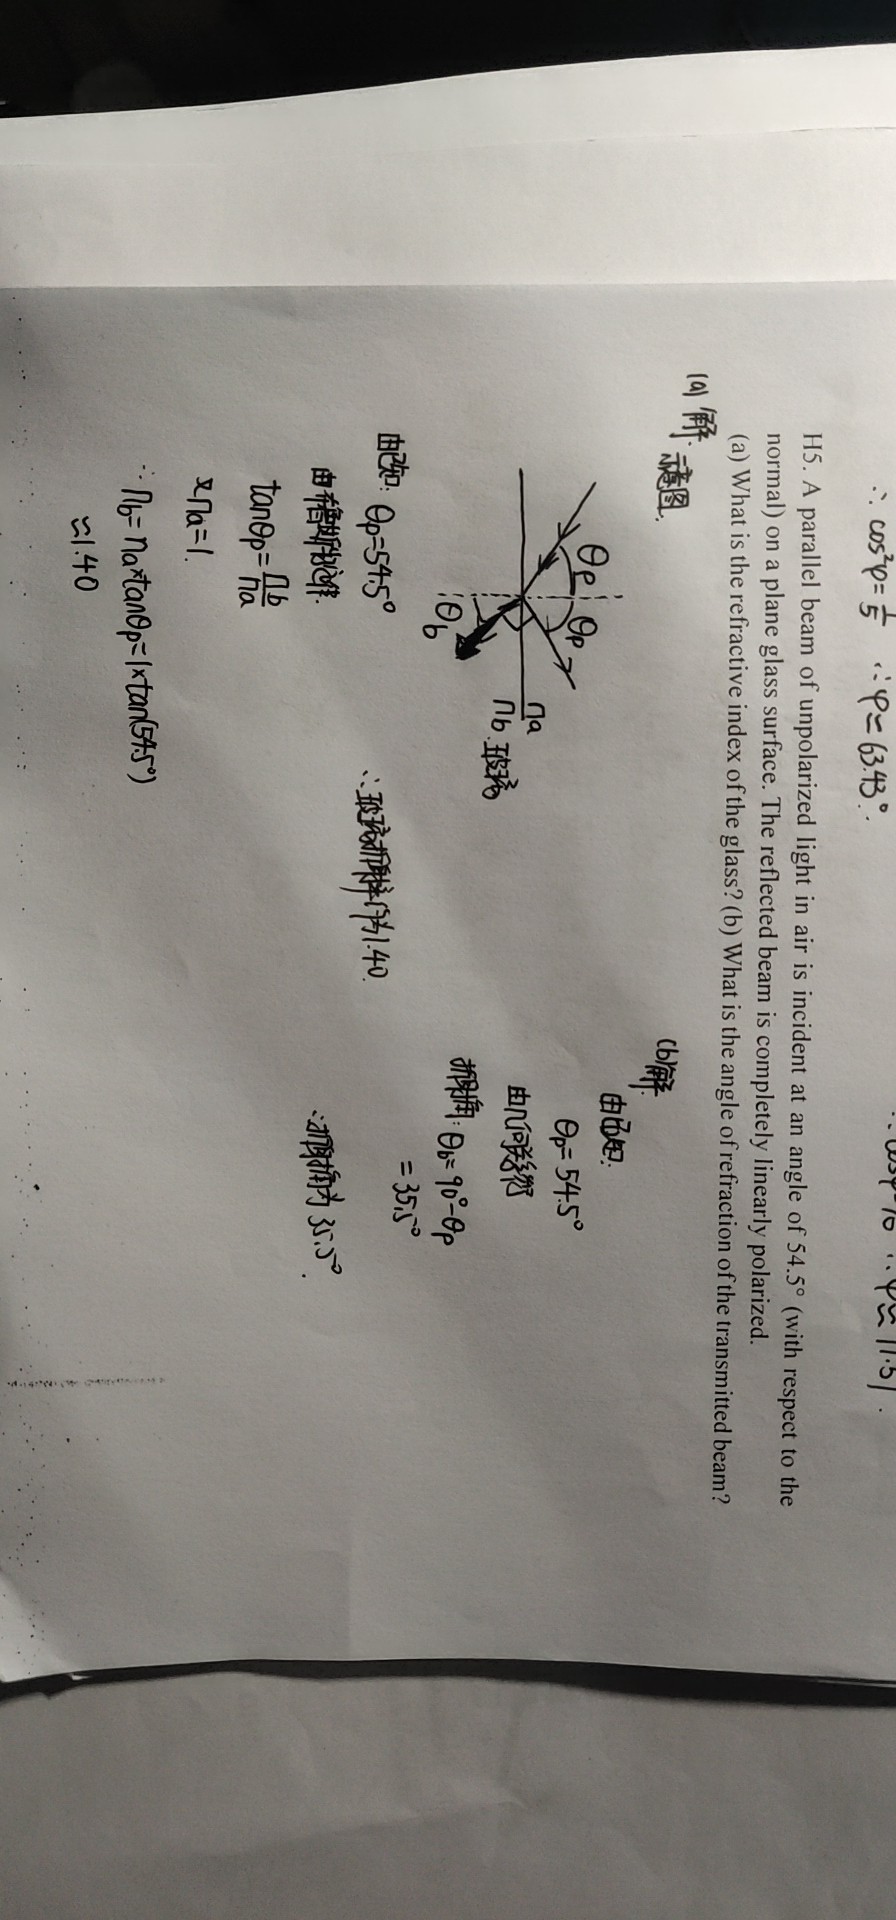 ∴ cos²φ = 1/5 ∴ φ ≈ 63.43°.
H5. A parallel beam of unpolarized light in air is incident at an angle of 54.5° (with respect to the
normal) on a plane glass surface. The reflected beam is completely linearly polarized.
(a) What is the refractive index of the glass? (b) What is the angle of refraction of the transmitted beam?
(a) 解.
示意图.
θp θp
na
nb 玻璃
θb
由已知: θp=54.5°
由布鲁斯特定律.
tanθp = nb/na
又na=1.
∴ nb= na×tanθp=1×tan(54.5°)
≈1.40
∴玻璃折射率为1.40.
(b)解.
θp= 54.5°
由几何关系得
折射角: θb= 90°-θp
= 35.5°
∴折射角为 35.5°.